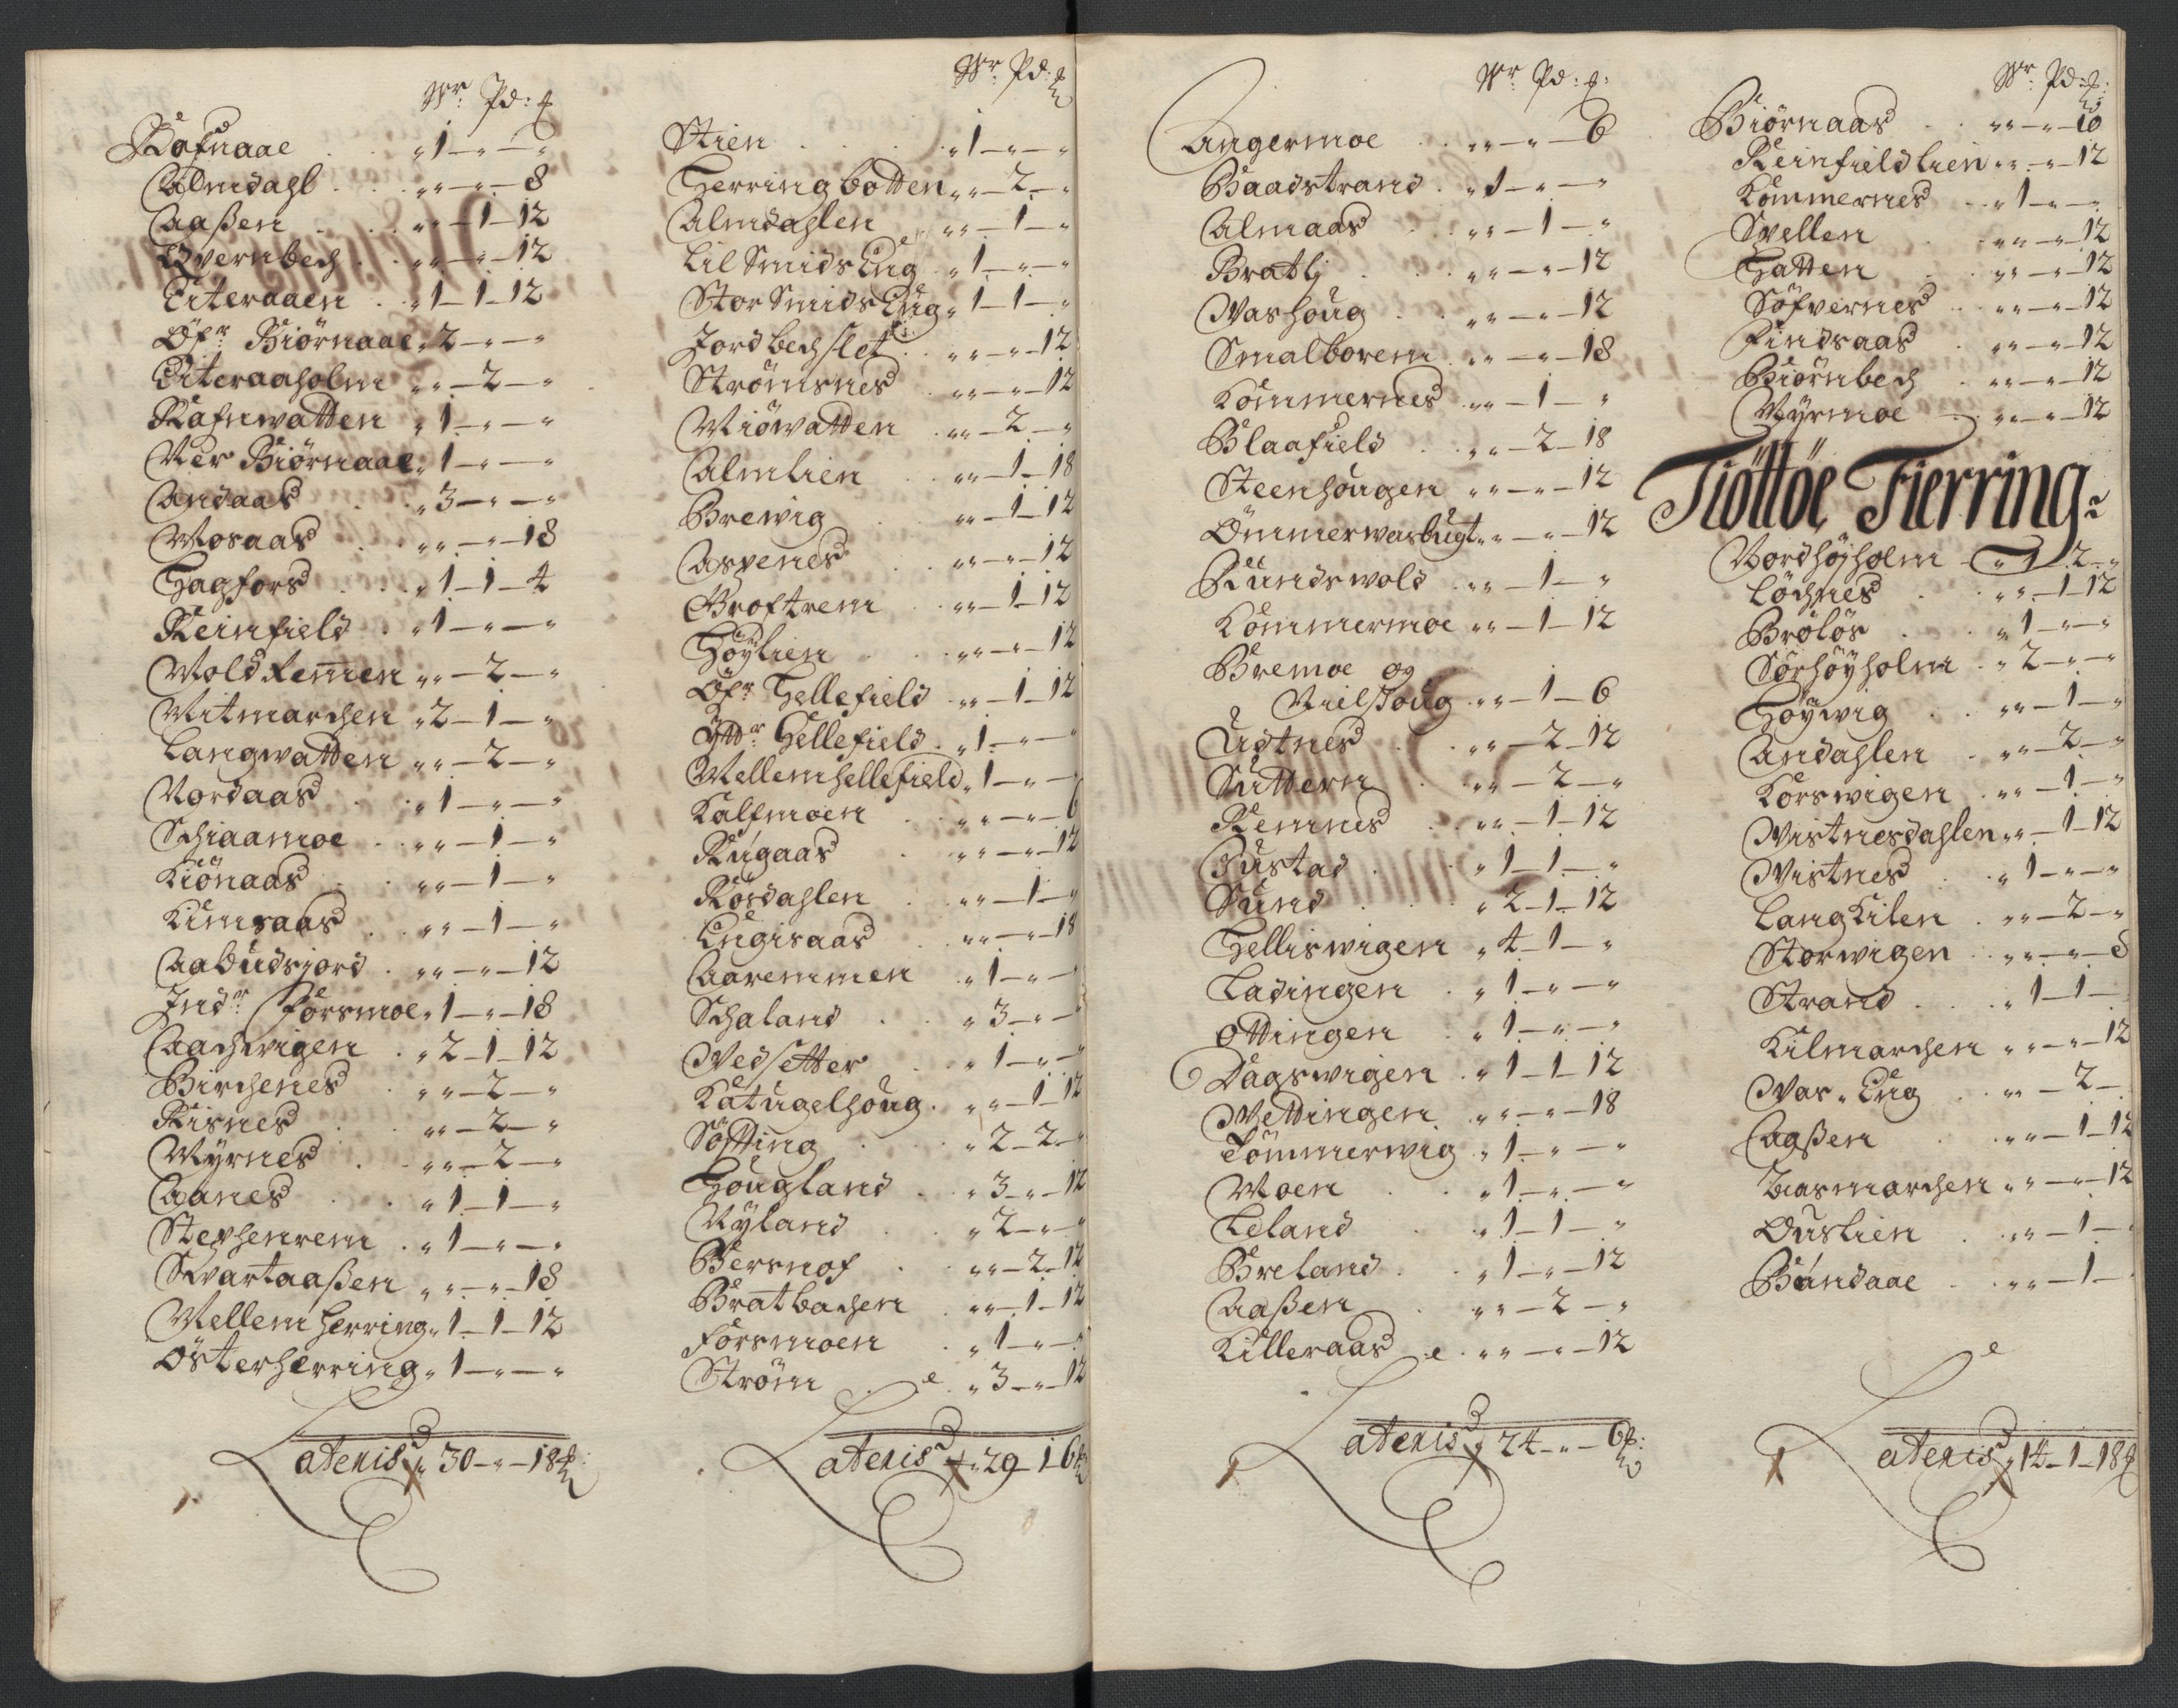 Wr: Pd: ℔
Rafnaae „ 1 — „ — „
Almdahl „ „ — „ — 8
Aaßen „ „ — 1 — 12
Qvernbech „ „ — „ — 12
Eiteraaen „ 1 — 1 — 12
Öfr: Biörnaae „ 2 — „ — „
Eiteraaholm „ „ — 2 — „
Rafnwatten „ 1 — „ — „
Ner Biörnaae „ 1 — „ — „
Andaas „ 3 — „ — „
Mosaas „ „ — „ — 18
Hagfors „ 1 — 1 — 4
Reinfield „ 1 — „ — „
Mold Remen „ „ — 2 — „
Mitmarchen „ 2 — 1 — „
Langwatten „ „ — 2 — „
Nordaas „ 1 — „ — „
Schiaamoe „ „ — 1 — „
Kiönaas „ „ — 1 — „
Kimsaas „ „ — 1 — „
Aabudsjord „ „ — „ — 12
Indr: Forsmoe „ 1 — „ — 18
Aachwigen „ 2 — 1 — 12
Birchenes „ „ — 2 — „
Risnes „ „ — 2 — „
Myrnes „ „ — 2 — „
Aanes „ 1 — 1 — „
Stephenrem „ 1 — „ — „
Svartaaßen „ „ — „ — 18
Mellem herring „ 1 — 1 — 12
Österherring „ 1 — „ — „
Lateris „ 30 — „ — 18 ℔:
Wr: Pd: ℔
Stien „ 1 — „ — „
Herringbotten „ „ — 2 — „
Almdahlen „ „ — 1 — „
Lil Smids Eng „ 1 — „ — „
Stor Smids Eng „ 1 — 1 — „
Jordbechslet „ „ — „ — 12
Strömsnes „ „ — „ — 12
Miöwatten „ „ — 2 — „
Almlien „ „ — 1 — 18
Brewig „ „ — 1 — 12
Aspenes „ „ — „ — 12
Groftrem „ „ — 1 — 12
Höylien „ „ — „ — 12
Öfr: Hellefield „ „ — 1 — 12
Yttr: Hellefield „ 1 — „ — „
Mellemhellefield „ 1 — „ — „
Kalfmoen „ „ — „ — 6
Rugaas „ „ — „ — 12
Rosdahlen „ „ — 1 — „
Engisaas „ „ — „ — 18
Aaremmen „ 1 — „ — „
Schaland „ 3 — „ — „
Wedsetter „ 1 — „ — „
Katugelhoug „ „ — 1 — 12
Söfting „ 2 — 2 — „
Hougland „ 3 — „ — 12
Nyland „ 2 — „ — „
Bersnof „ „ — 2 — 12
Bratbachen „ „ — 1 — 12
Forsmoen „ 1 — „ — „
Ström „ 3 — „ — 12
Lateris „ 29 — 1 — 6 ℔
Wr: Pd: ℔:
Angermoe „ „ — „ — 6
Baadstrand „ 1 — „ — „
Almaas „ „ — 1 — „
Bratli „ „ — „ — 12
Washoug „ „ — „ — 12
Smalborem „ „ — „ — 18
Kommernes „ „ — 1 — „
Blaafield „ „ — 2 — 18
Steenhougen „ „ — „ — 12
Ömmerwasbugt „ „ — „ — 12
Rundswold „ „ — 1 — „
Kommermoe „ „ — 1 — 12
Bremoe og
Nielshoug „ „ — 1 — 6
Udtnes „ „ — 2 — 12
Suttern „ „ — 2 — „
Remnes „ „ — 1 — 12
Bustad „ 1 — 1 — „
Sund „ 2 — 1 — 12
Helliswigen „ 4 — 1 — „
Ladingen „ 1 — „ — „
Ottingen „ 1 — „ — „
Dagswigen „ 1 — 1 — 12
Wettingen „ „ — „ — 18
Tömmerwig „ 1 — „ — „
Moen „ 1 — „ — „
Leland „ 1 — 1 — „
Breland „ 1 — „ — 12
Aaßen „ „ — 2 — „
Killeraas „ „ — „ — 12
Lateris „ 24 — „ — 6 ℔:
Wr: Pd: ℔:
Biörnaas „ „ — „ — 10
Reinfieldlien „ „ — „ — 12
Kommernes „ 1 — „ — „
Svellen „ „ — „ — 12
Hatten „ „ — „ — 12
Söfvernes „ „ — „ — 12
Findsaas „ „ — „ — 12
Biörnbech „ „ — „ — 12
Myrmoe „ „ — „ — 12
Tiöttöe Fierring:
Nordhöyholm „ 1 — 2 — „
Löchnes „ „ — 1 — 12
Brölös „ 1 — „ — „
Sörhöyholm „ 2 — „ — „
Höywig „ „ — 1 — „
Andahlen „ „ — 2 — „
Korswigen „ „ — 1 — „
Wistnesdahlen „ „ — 1 — 12
Wistnes „ 1 — „ — „
Lang Kilen „ „ — 2 — „
Storwigen „ „ — „ — 8
Strand „ 1 — 1 —
Kilmarchen „ „ — „ — 12
Was„ Eng „ „ — 2 —
Aaßen „ „ — 1 — 12
Zias marchen „ „ — „ — 12
Ouslien „ „ — 1 —
Bundaae „ „ — 1 —
Lateris „ 14 — 1 — 18 ℔